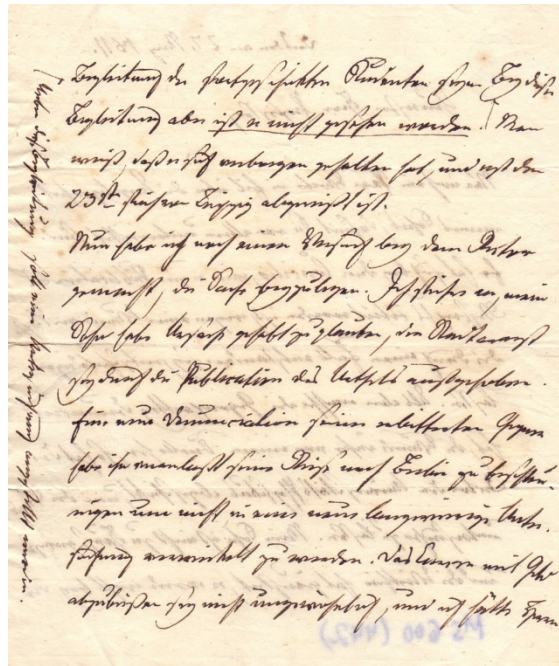 Begleitung der fortgeschickten Studenten gegen Bey dieser
Begleitung aber ist er nicht gesehen worden. Man
weiß daß er sich verborgen gehalten hat, und erst den
23sten früh von Leipzig abgereist ist.
Nun habe ich noch einen Versuch bey dem Rector
gemacht, die Sache beyzulegen. Ich schrieb an, mein
Sohn habe Ursach gehabt zu glauben, der Stadtarrest
sey durch die Publication des Urthels aufgehoben.
Eine neue Denunciation seiner erbitterten Gegner
habe ihn veranlaßt seine Reise nach Berlin zu beschleu-
nigen um nicht in eine neue langwierige Unter-
suchung verwickelt zu werden. Das Carcer mit Geld
abzubüßen sey nicht ungewöhnlich, und ich hätte
Ueber diese Begleitung soll eine Untersuchung angestellt werden.
MS 600 (442)